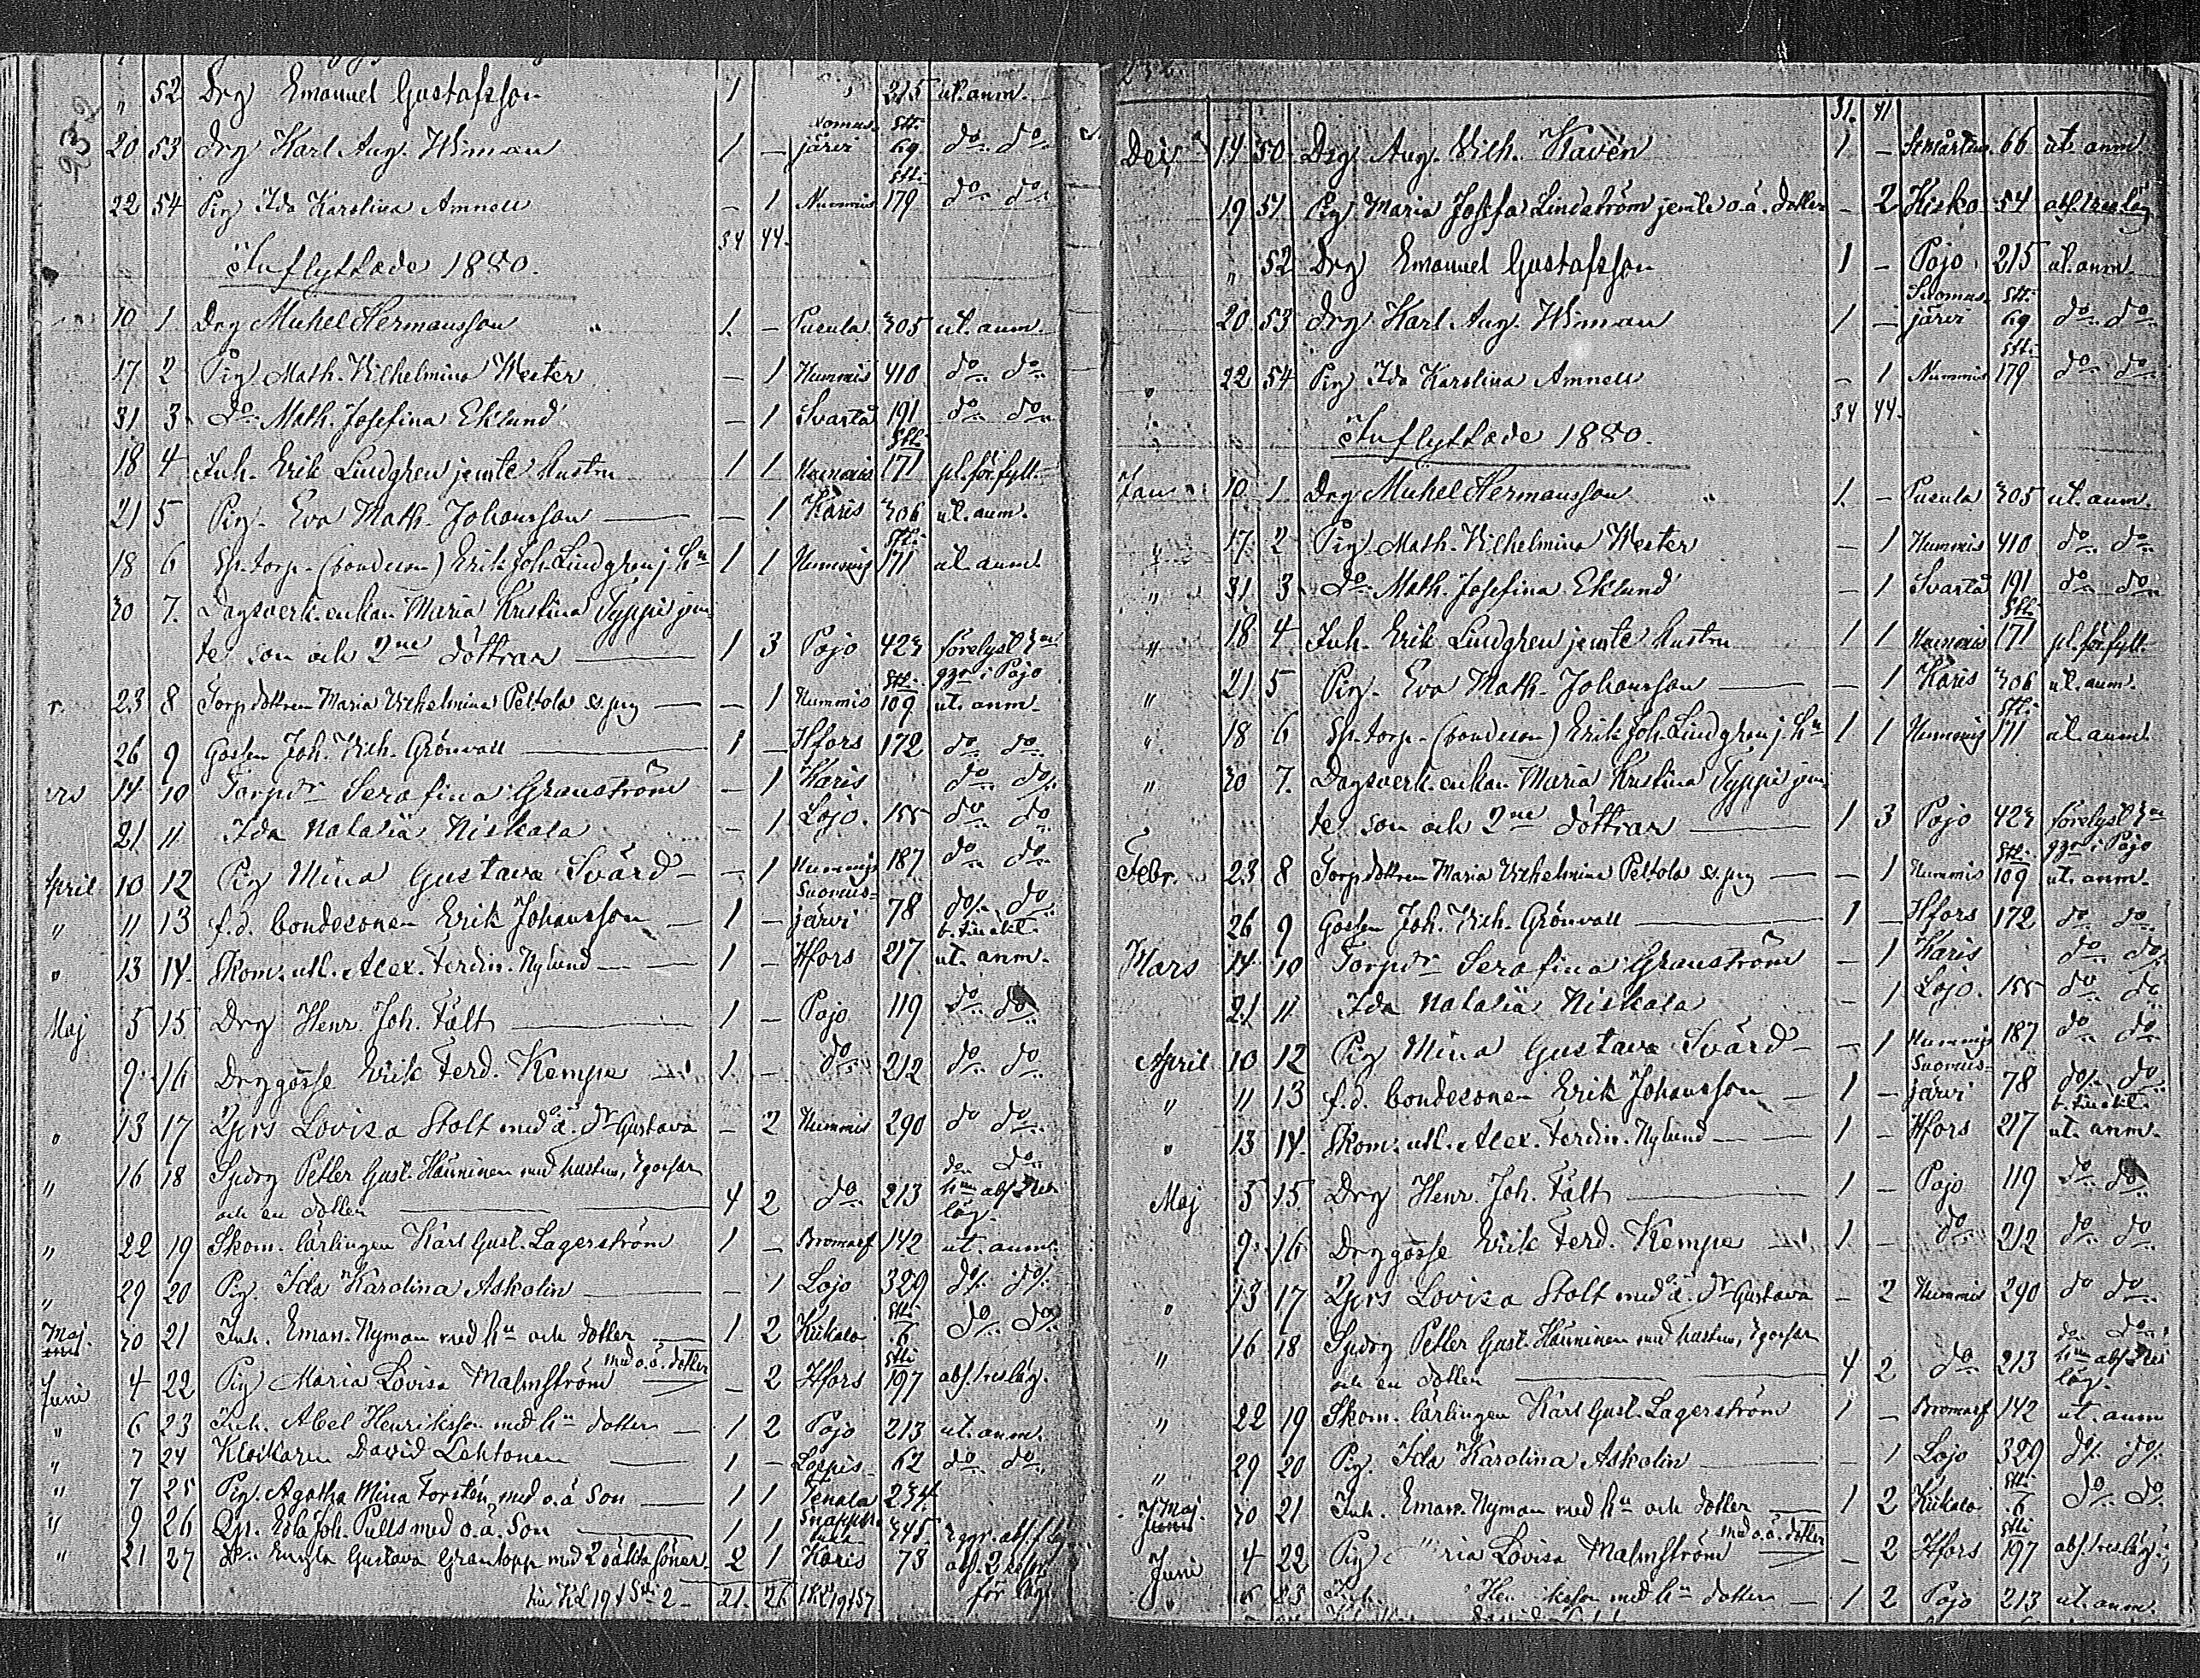 232
" 52 Drg Emanuel Gustafsson 1 215 ut. anm.
20 53 Drg Karl Aug. Wiman 1 — Somusjärvi Stti 69 do do
22 54 Pig Ida Karolina Amnell — 1 Nummis Stti 179 do do
34 44.
Inflyttade 1880.
10 1 Drg Michel Hermansson 1. — Pusula 305 ut. anm.
17 2 Pig Math. Vilhelmina Wester — 1 Nummis 410 do do
31 3 Do Math. Josefina Eklund — 1 Svartå 191 do do
18 4 Inh. Erik Lindgren jemte hustru 1 1 Nummis Stti 171
21 5 Pig. Eva Math. Johansson — 1 Karis 306 ut. anm.
18 6 (bondeson) Erik Joh. Lindgren j. hu 1 1 Nummis Stti 171 ut. anm.
30 7. Dagsverk. enkan Maria Kristina Typpi jem-
te son och 2ne döttrar 1 3 Pojo 423 förelyst 3ne
ggr i Pojo
r. 23 8 Torpdottren Maria Vilhelmina Peltola — 1 Nummis Stti 109 ut. anm.
26 9 Gossen Joh. Vilh. Grönvall 1 — Hfors 172 do do
rs 14 10 Torpdr Serafina Granström — 1 Karis do do
21 11 Ida Natalia Niskala — 1 Lojo. 155 do do
April 10 12 Pig Mina Gustava Svärd — 1 Nummis 187 do do
" 11 13 f.d. bondesonen Erik Johansson 1 — Suomusjärvi 78 do do
" 13 14. Skom. utl. Alex. Ferdin. Nylund 1 — Hfors 217 ut. anm.
Maj 5 15 Drg Henr. Joh. Fält 1 — Pojo 119 do do
9 16 Drggosse Erik Ferd. Kempe 1. — do 212 do do
" 13 17 Lovisa Stolt med o.ä. dr Gustava — 2 Nummis 290 do do
" 16 18 Petter Gust. Hänninen med hustru, 3 gossar
och en dotter 4 2 do 213
" 22 19 Skom. lärlingen Karl Gust. Lagerström 1 — Bromarf 142 ut. anm.
" 29 20 Pig. Ida Karolina Askolin — 1 Lojo 329 do do
Maj 30 21 Inh. Eman. Nyman med hu och dotter 1 2 Kiikala Stti 6 do do
Juni 4 22 Pig Maria Lovisa Malmström med o.ä. dotter — 2 Hfors Stti 197
" 6 23 Inh. Abel Henriksson med hu dotter 1 2 Pojo 213 ut. anm.
" 7 24 Klockaren David Lehtonen 1 — Loppis 62 do do
" 7 25 Pig. Agatha Mina Forstén med o.ä. son 1 1 Tenala 234.
" 9 26 Eda Joh. Pulls med o.ä. son 1 1 345.
" 21 27 Gustava Grantopp med 2 oäkta söner. 2 1 Karis 73
21. 26.
31. 41
Dec 14 50 Drg Aug. Vilh. Kavén 1 — St Mårtens 66 ut. anm.
19 51 Pig Maria Josefa Lindström jemte o.ä. dotter — 2 Kisko 54
" 52 Drg Emanuel Gustafsson 1 — Pojo 215 ut. anm.
20 53 Drg Karl Aug. Wiman 1 — Suomusjärvi Stti 69 do do
" 22 54 Pig Ida Karolina Amnell — 1 Nummis Stti 179 do do
34 44.
Inflyttade 1880.
Jan 10 1 Drg Michel Hermansson 1. — Pusula 305 ut. anm.
" 17 2 Pig Math. Vilhelmina Wester — 1 Nummis 410 do do
" 31 3 Do Math. Josefina Eklund — 1 Svartå 191 do do
" 18 4 Inh. Erik Lindgren jemte hustru 1 1 Nummis Stti 171
" 21 5 Pig. Eva Math. Johansson — 1 Karis 306 ut. anm.
" 18 6 (bondeson) Erik Joh. Lindgren j. hu 1 1 Nummis Stti 171 ut. anm.
" 30 7. Dagsverk. enkan Maria Kristina Typpi jem-
te son och 2ne döttrar 1 3 Pojo 423 förelyst 3ne
ggr i Pojo
Febr. 23 8 Torpdottren Maria Vilhelmina Peltola — 1 Nummis Stti 109 ut. anm.
26 9 Gossen Joh. Vilh. Grönvall 1 — Hfors 172 do do
Mars 14 10 Torpdr Serafina Granström — 1 Karis do do
21 11 Ida Natalia Niskala — 1 Lojo. 155 do do
April 10 12 Pig Mina Gustava Svärd — 1 Nummis 187 do do
" 11 13 f.d. bondesonen Erik Johansson 1 — Suomusjärvi 78 do do
" 13 14. Skom. utl. Alex. Ferdin. Nylund 1 — Hfors 217 ut. anm.
Maj 5 15 Drg Henr. Joh. Fält 1 — Pojo 119 do do
9 16 Drggosse Erik Ferd. Kempe 1 — do 212 do do
" 13 17 Lovisa Stolt med o.ä. dr Gustava — 2 Nummis 290 do do
" 16 18 Petter Gust. Hänninen med hustru, 3 gossar
och en dotter 4 2 do 213
" 22 19 Skom. lärlingen Karl Gust. Lagerström 1 — Bromarf 142 ut. anm
" 29 20 Pig. Ida Karolina Askolin — 1 Lojo 329 do do
Maj. 30 21 Inh. Eman. Nyman med hu och dotter 1 2 Kiikala Stti 6 do do
Juni 4 22 Pig ria Lovisa Malmström med o.ä. dotter — 2 Hfors Stti 197
" 6 23 Inh. Henriksson med hu dotter 1 2 Pojo 213 ut. anm.